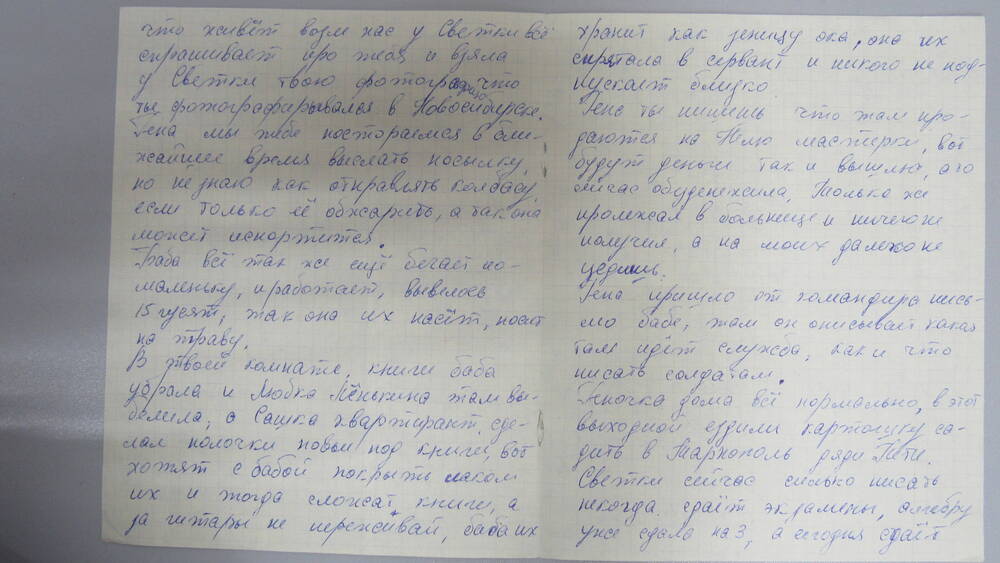 что живёт возле нас у Светки всё
спрашивает про тебя и взяла
у Светки твою фотографию что
ты фотографировался в Новосибирске.
Гена мы тебе постораемся в бли-
жайшее время выслать посылку,
но не знаю как отправлять колбасу,
если только её обжарить, а так она
может испортится.
Баба всё так же ещё бегает по-
маленьку, и работает, вывелось
15 гусят, так она их пасёт, носит
на траву.
В твоей комнате, книги баба
убрала и Любка Лёнькина там вы-
белила, а Сашка квартирант сде-
лал полочки новые под книги, вот
хотят с бабой покрыть лаком
их и тогда сложат книги, а
за гитары не переживай, баба их
хранит как зеницу ока, она их
спрятала в сервант и никого не под-
пускает близко.
Гена ты пишешь что там про-
даются на Нелю мастерки, вот
будут деньги так и вышлю, а то
сейчас обезденежила, Толька же
пролежал в больнице и ничего не
получил, а на моих далеко не
уедишь.
Гена пришло от командира пись-
мо бабе, там он описывает какая
там идёт служба, как и что
писать солдатам.
Геночка дома всё нормально, в этот
выходной ездили картошку са-
дить в Тархополь дяди Пети.
Светки сейчас сильно писать
некогда сдаёт экзамены, алгебру
уже сдала на 3, а сегодня сдаёт